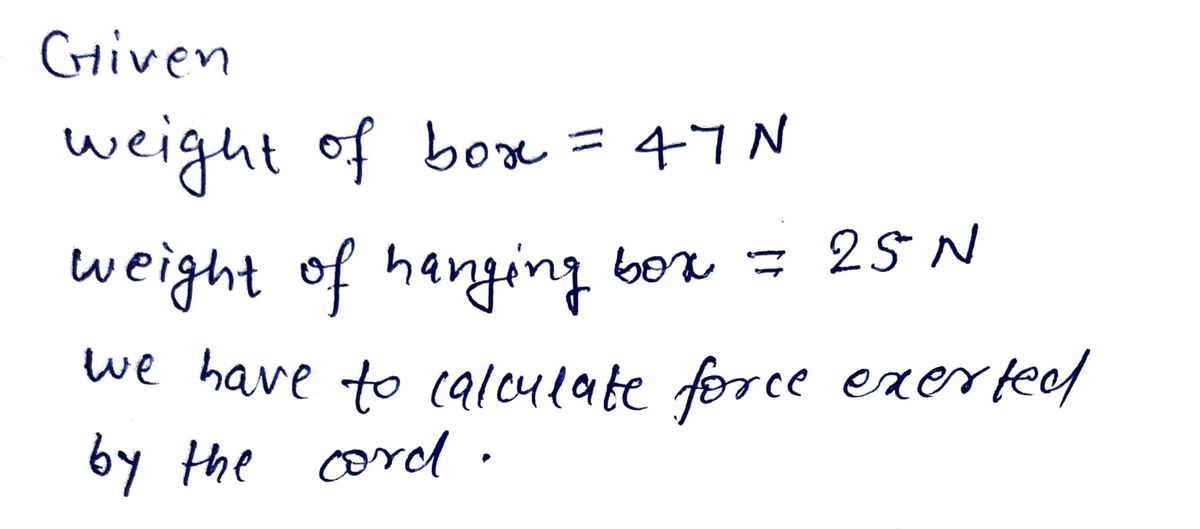 Given
weight of box = 47 N
weight of hanging box = 25 N
we have to calculate force exerted
by the cord.